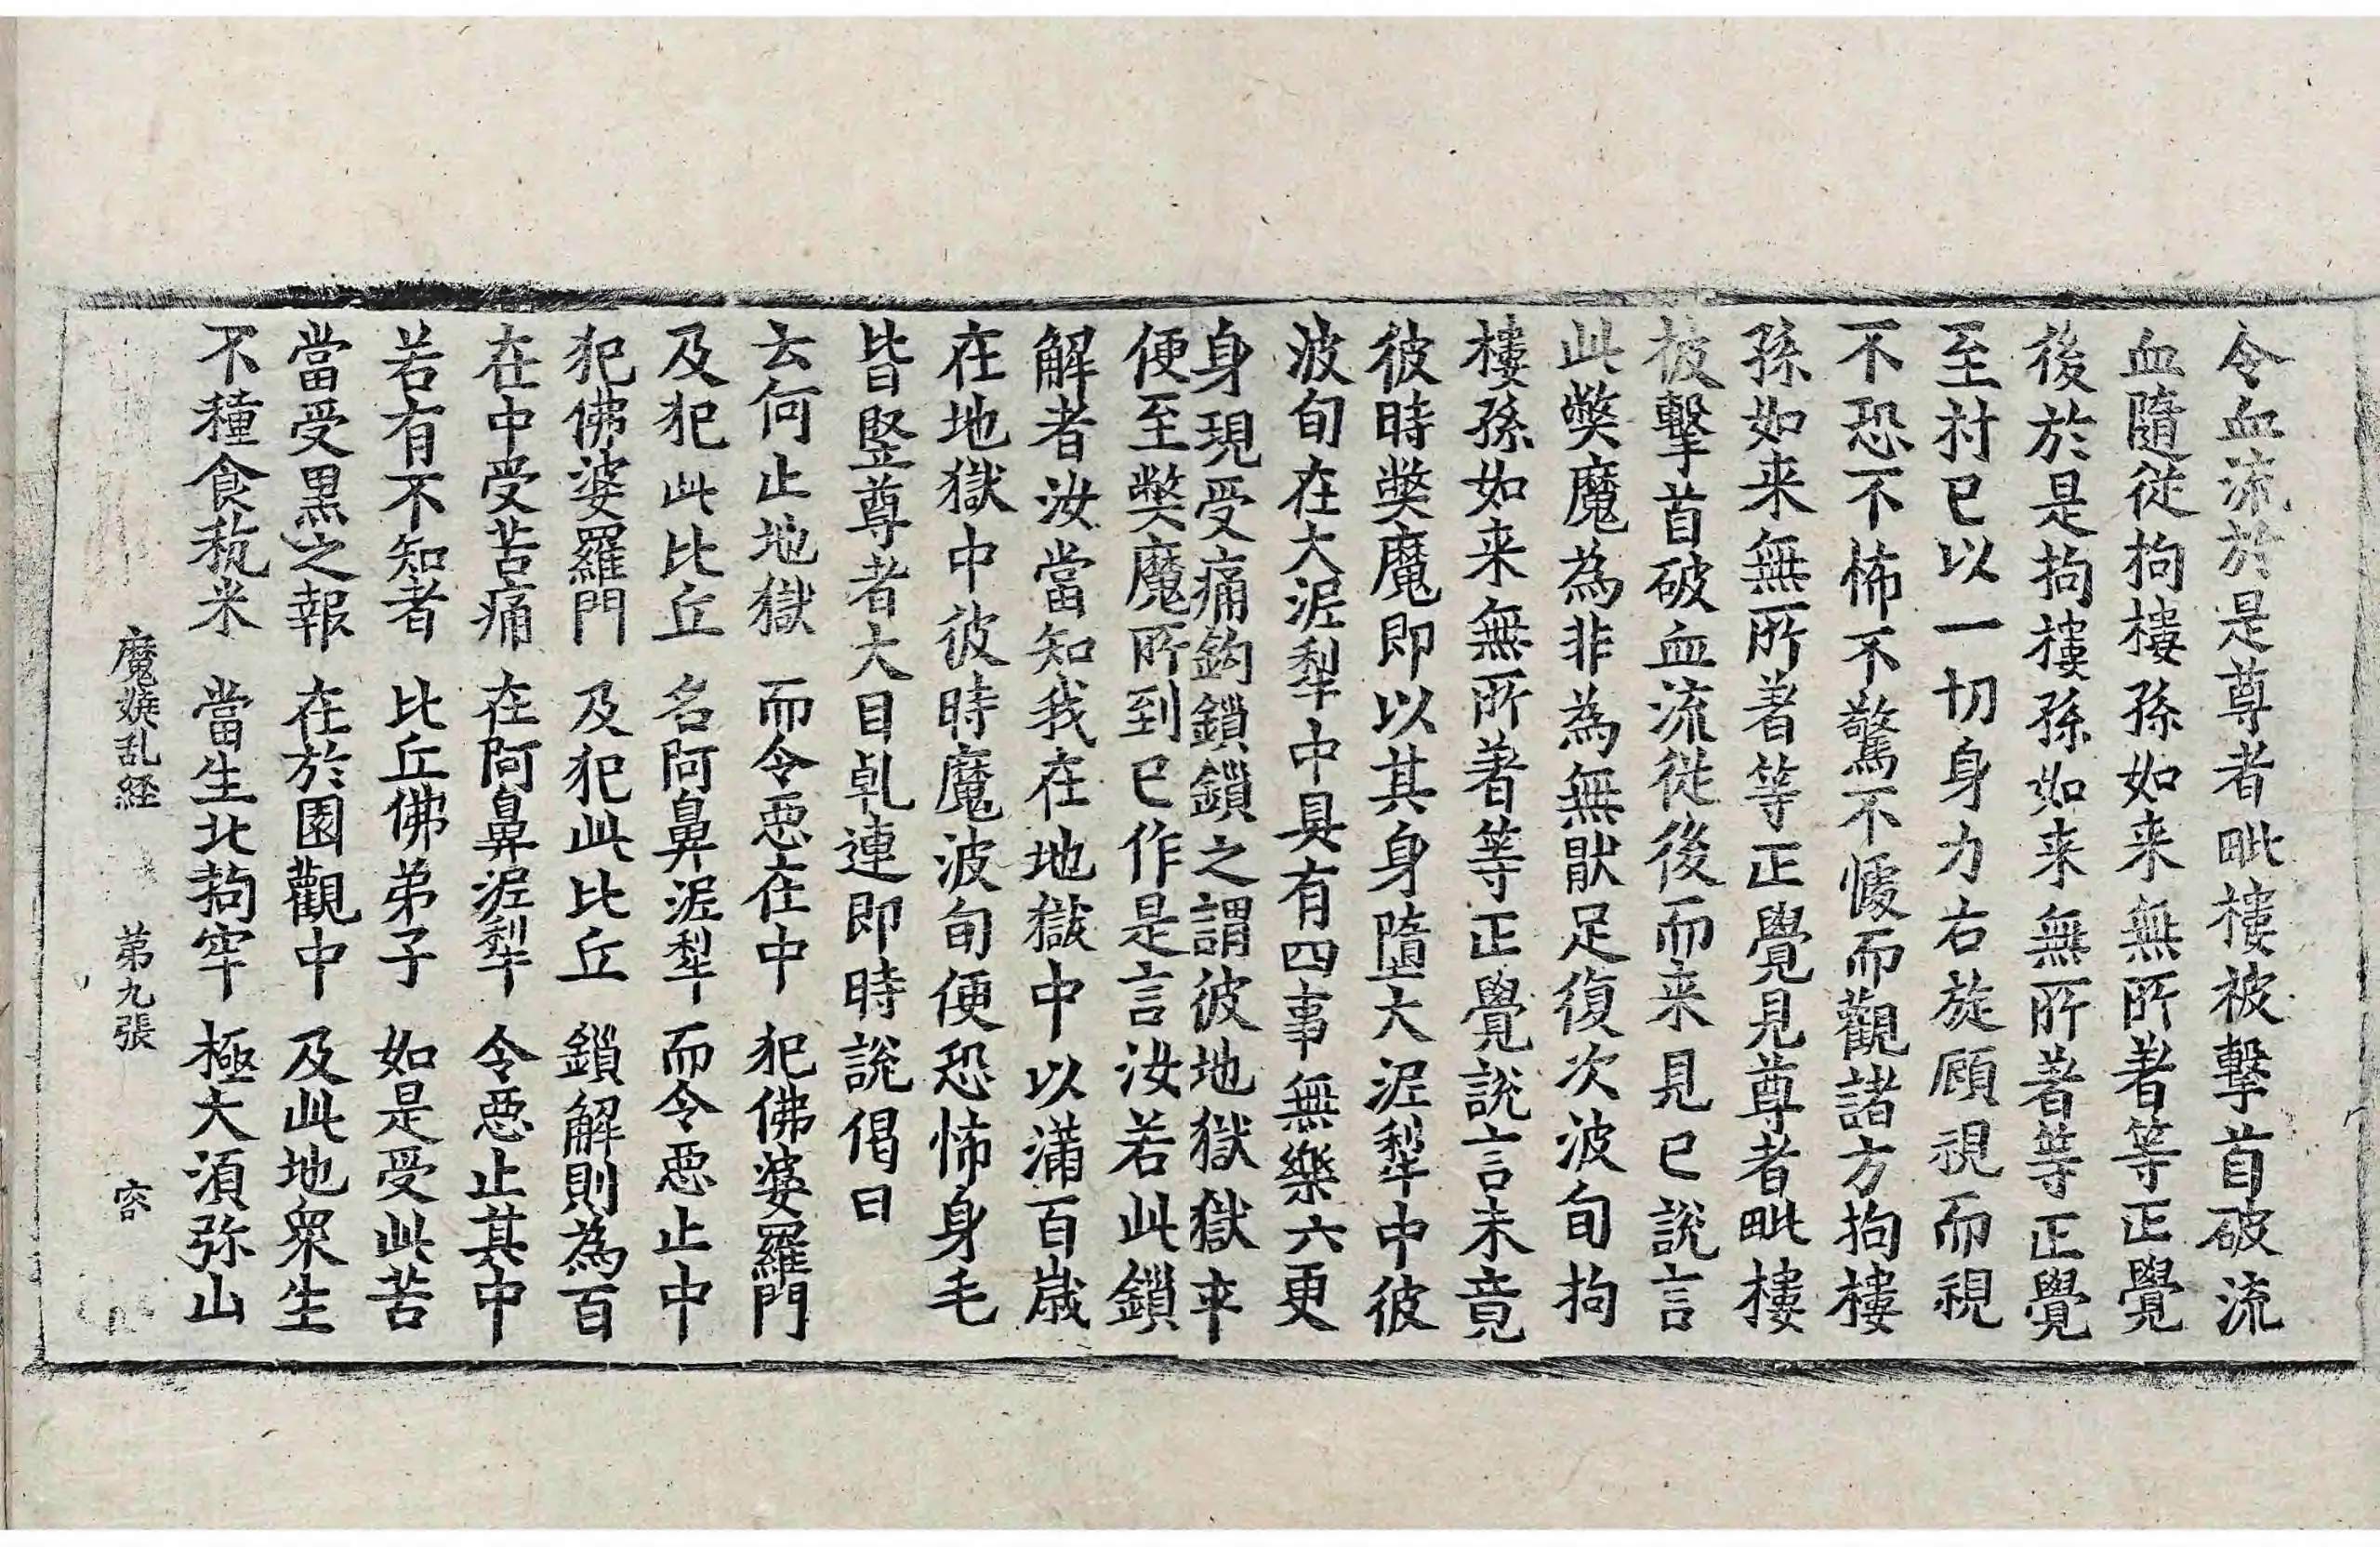 令血流於是尊者毗樓被擊首破流
血隨從拘樓孫如来無所著等正覺
後於是拘樓孫如来無所著等正覺
至村已以一切身力右旋顧視而視
不恐不怖不驚不懅而觀諸方拘樓
孫如来無所著等正覺見尊者毗樓
被擊首破血流從後而来見已說言
此弊魔為非為無猒足復次波旬拘
樓孫如来無所著等正覺說言未竟
彼時弊魔即以其身墮大泥犁中彼
波旬在大泥犁中具有四事無樂六更
身現受痛鈎鎖鎖之謂彼地獄獄卒
便至弊魔所到已作是言汝若此鎖
解者汝當知我在地獄中以滿百歲
在地獄中彼時魔波旬便恐怖身毛
皆竪尊者大目乹連即時說偈曰
云何止地獄　而令惡在中　犯佛婆羅門
及犯此比丘　名阿鼻泥犁　而令惡止中
犯佛婆羅門　及犯此比丘　鎖解則為百
在中受苦痛　在阿鼻泥犁　令惡止其中
若有不知者　比丘佛弟子　如是受此苦
當受黑之報　在於園觀中　及此地衆生
不種食秔米　當生北拘牢　極大須弥山
魔嬈乱経　第九張　容